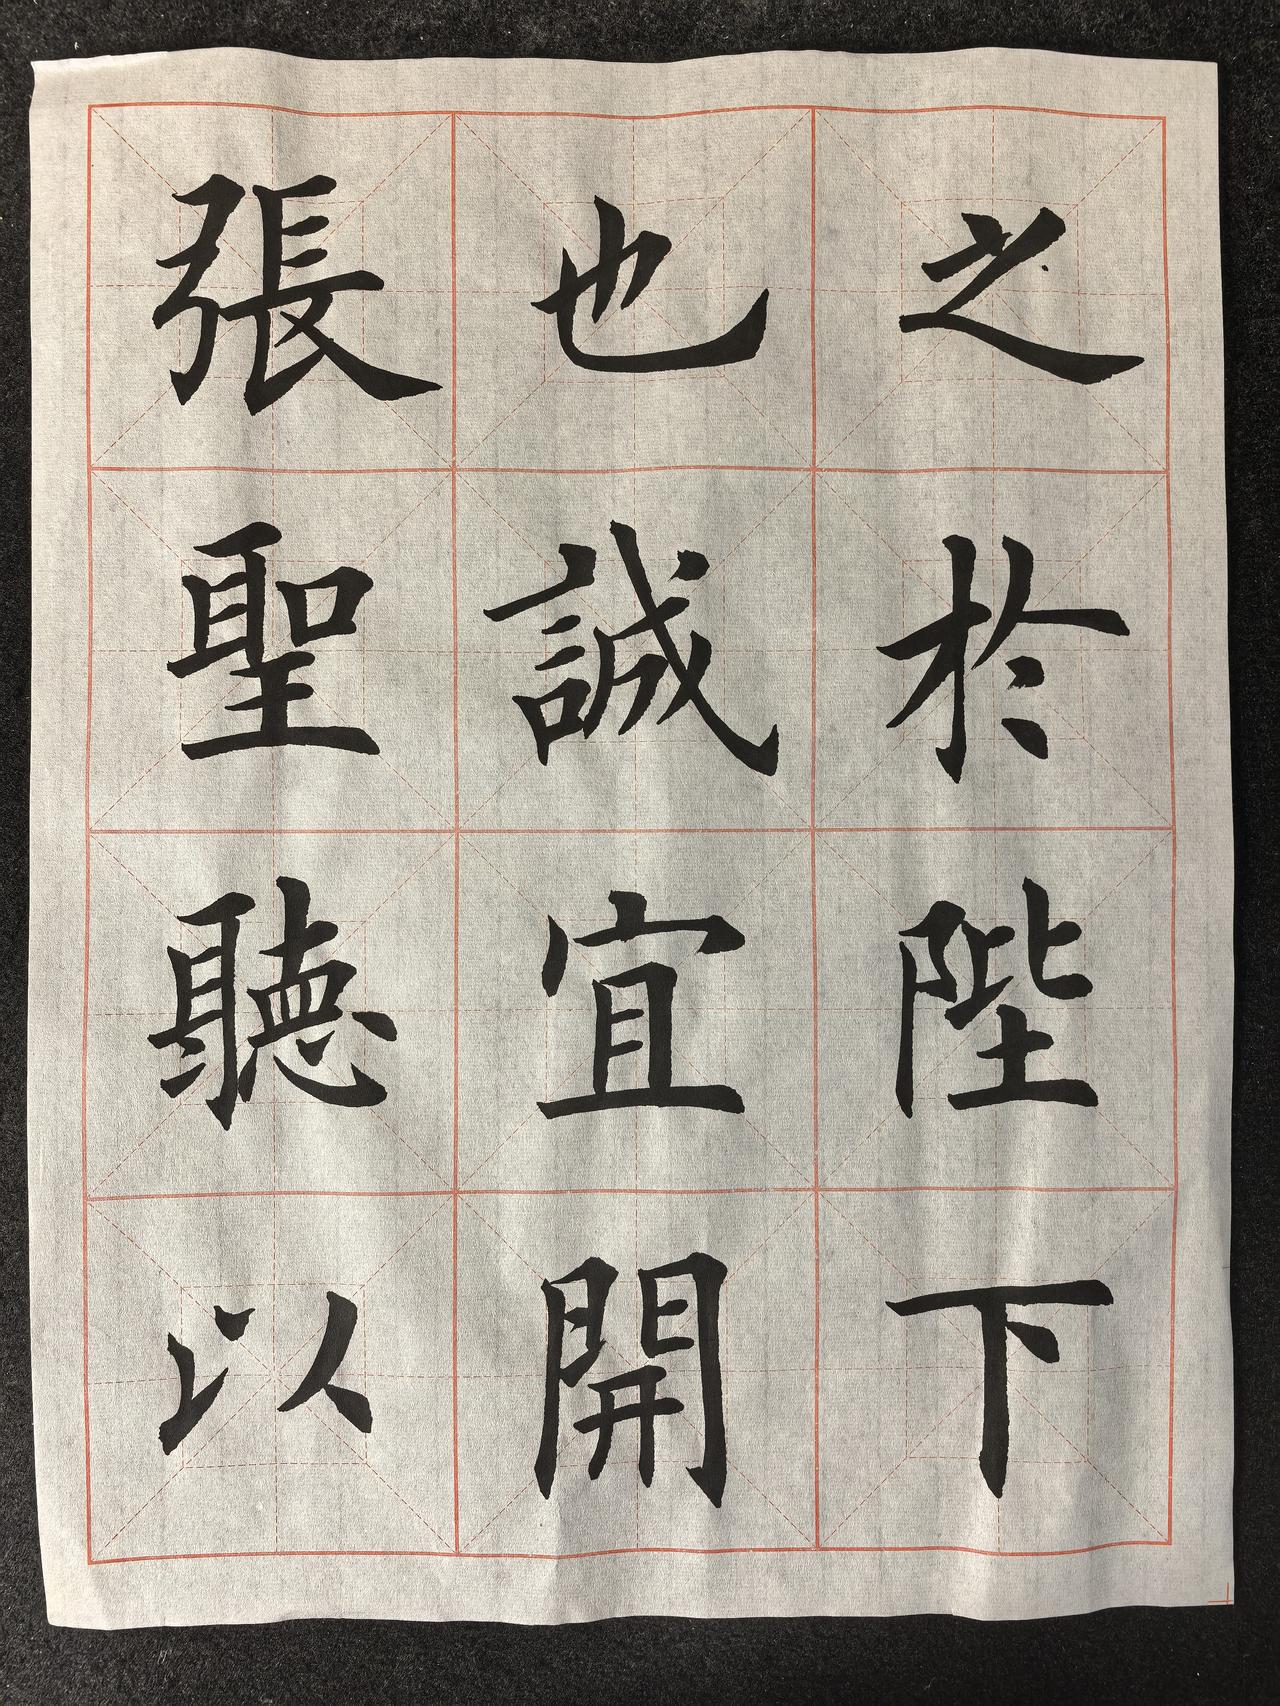 之於陛下
也誠宜開
張聖聽以